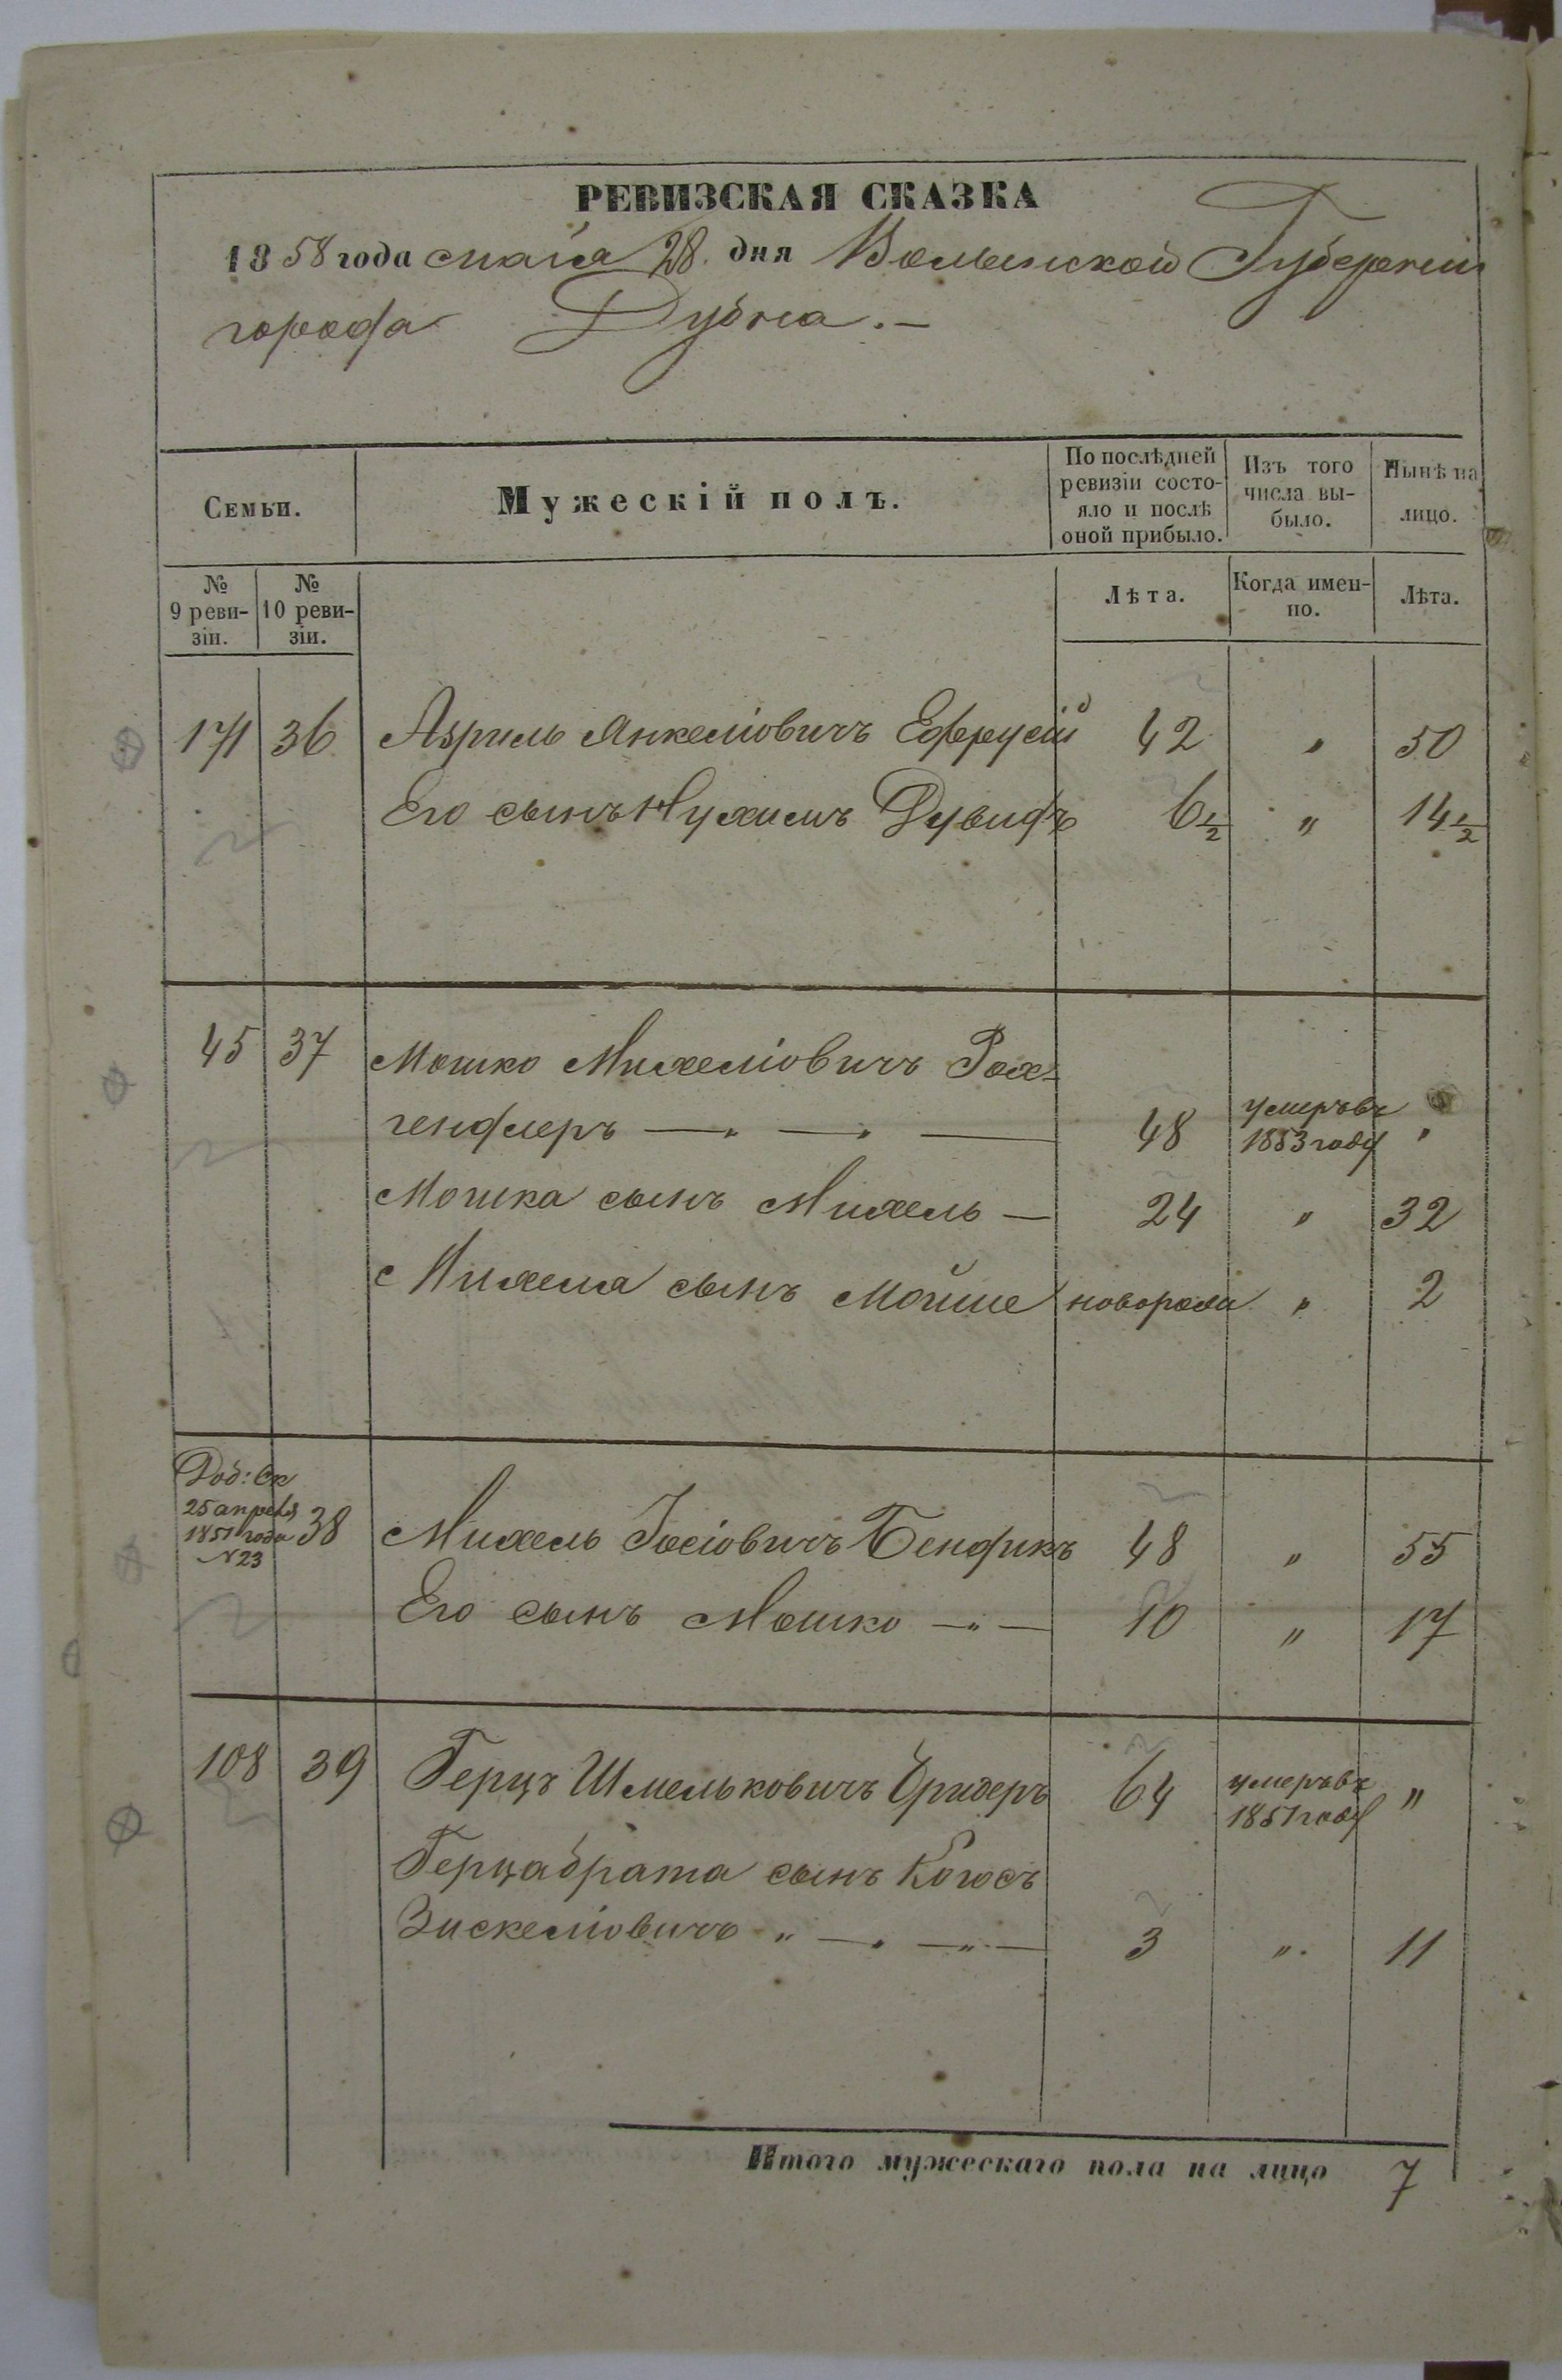 РЕВИЗСКАЯ СКАЗКА
1858 года мая 28. дня Волынской Губерніи
города Дубна.—
Семьи.
Мужескій полъ.
По послѣдней ревизіи состо-
яло и послѣ
оной прибыло.
Изъ того
числа вы-
было.
Нынѣ на
лицо.
№
9 реви-
зіи.
№
10 реви-
зіи.
Лѣта.
Когда имен-
но.
Лѣта.
171 36 Азриль Янкеліовичъ Ефрусій 42 „ 50
Его сынъ Нухимъ Дувидъ 6½ „ 14½
45 37 Мошко Михеліовичъ Рох-
гендлеръ 48 умеръ въ 1853 году „
Мошка сынъ Михель — 24 „ 32
Михеля сынъ Мойше новорож „ 2
Доб: Ск
25 апреля
1851 года
N23
38 Михель Іосіовичъ Бендикъ 48 „ 55
Его сынъ Мошко —„— 10 „ 17
108 39 Герцъ Шмельковичъ 64 умеръ въ 1851 году „
Герца брата сынъ
Зискеліовичъ 3 „ 11
Итого мужескаго пола на лицо 7